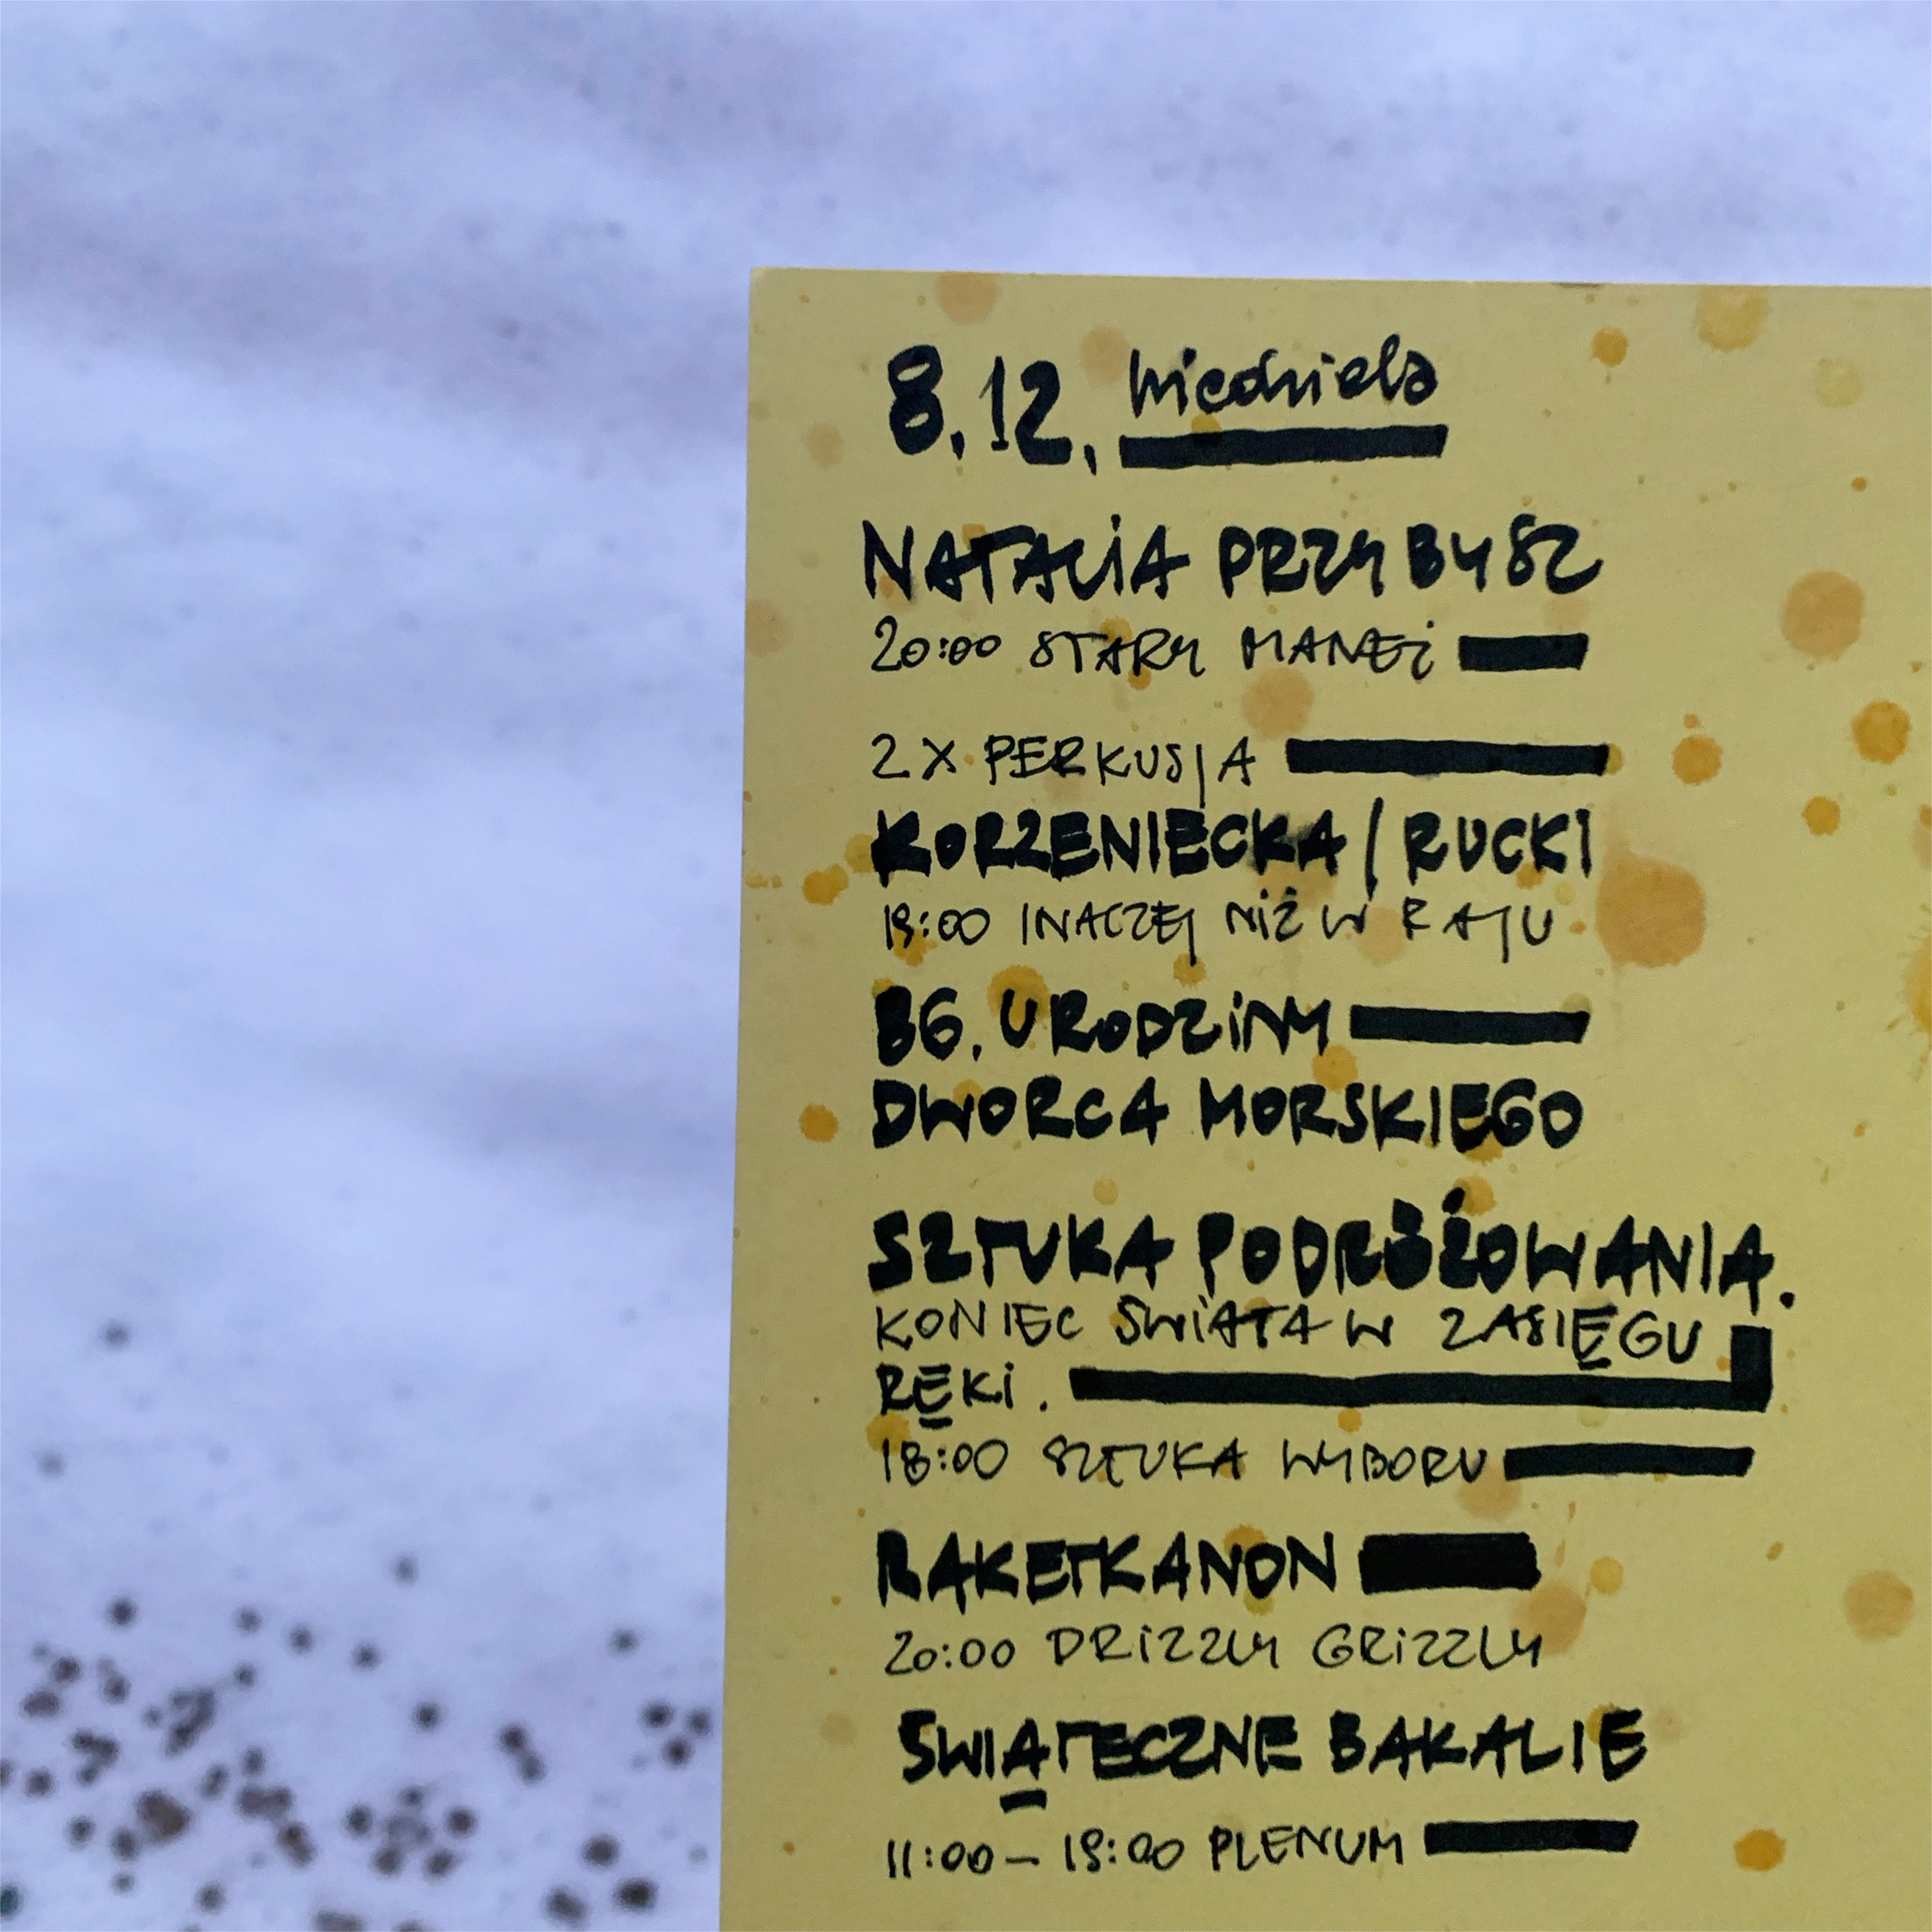 8.12. niedziela
NATALIA PRZYBYSZ
20:00 STARY MANEŻ
2 X PERKUSJA
KORZENIECKA / RUCKI
19:00 INACZEJ NIŻ W RAJU
86. URODZINY
DWORCA MORSKIEGO
SZTUKA PODRÓŻOWANIA.
KONIEC ŚWIATA W ZASIĘGU
RĘKI.
18:00 SZTUKA WYBORU
RAKETKANON
20:00 DRIZZLY GRIZZLY
ŚWIĄTECZNE BAKALIE
11:00 – 19:00 PLENUM